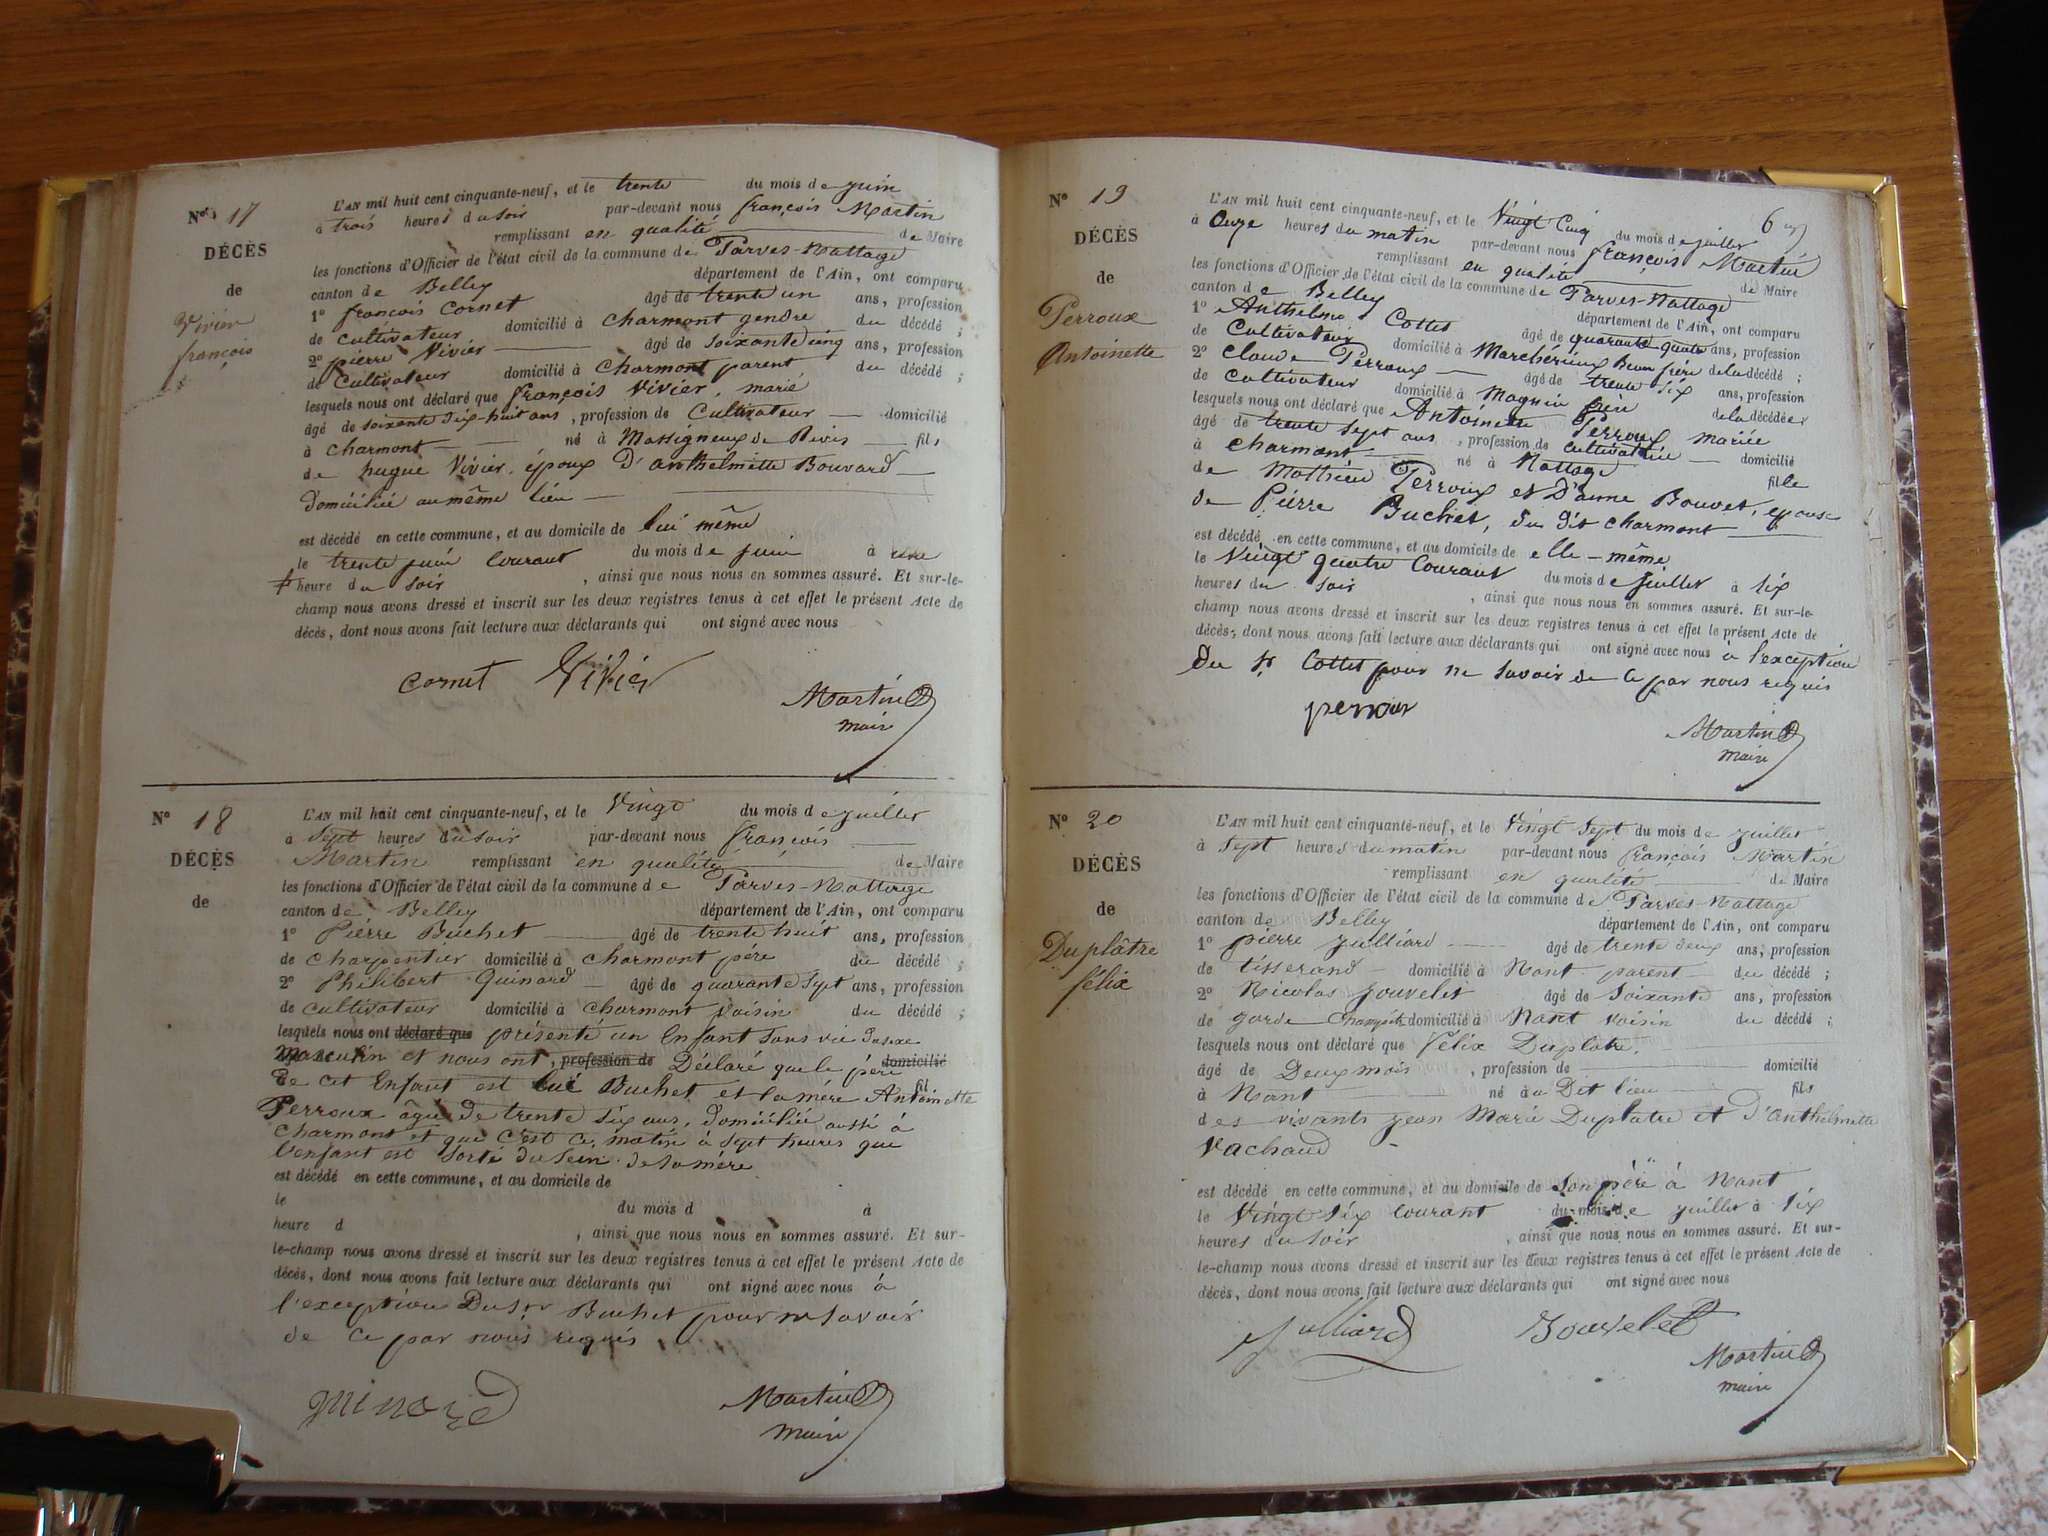 N° 17
DÉCÈS
de
Vivier
françois
L'AN mil huit cent cinquante-neuf, et le trente du mois de juin
à trois heures du soir par-devant nous françois Martin
remplissant en qualité de Maire
les fonctions d'Officier de l'état civil de la commune de Parves-Nattage
canton de Belley département de l'Ain, ont comparu
1° françois Cornet âgé de trente un ans, profession
de cultivateur domicilié à Charmont gendre du décédé ;
2° pierre Vivier âgé de soixante cinq ans, profession
de Cultivateur domicilié à Charmont parent du décédé ;
lesquels nous ont déclaré que françois Vivier, marié
âgé de soixante dix-huit ans, profession de Cultivateur domicilié
à Charmont né à Massigneux de Rives fils
de hugue Vivier, époux d'anthelmette Bouvard
Domiciliée au même lieu
est décédé en cette commune, et au domicile de lui même
le trente juin Courant du mois de juin à une
heure du soir, ainsi que nous nous en sommes assuré. Et sur-le-
champ nous avons dressé et inscrit sur les deux registres tenus à cet effet le présent Acte de
décès, dont nous avons fait lecture aux déclarants qui ont signé avec nous
Cornet Vivier
Martin
maire
N° 18
DÉCÈS
de
L'AN mil huit cent cinquante-neuf, et le Vingt du mois de juillet
à Sept heures du soir par-devant nous françois
Martin remplissant en qualité de Maire
les fonctions d'Officier de l'état civil de la commune de Parves-Nattage
canton de Belley département de l'Ain, ont comparu
1° Pierre Buchet âgé de trente huit ans, profession
de Charpentier domicilié à Charmont père du décédé ;
2° Philibert Guinard âgé de quarante Sept ans, profession
de cultivateur domicilié à Charmont voisin du décédé ;
lesquels nous ont déclaré que présenté un Enfant Sans vie du sexe
Masculin et nous ont, profession de Déclaré que le père domicilié
de cet Enfant est lui Buchet et la mère Antoinette fil
Perroux âgée de trente six ans, domiciliée aussi à
Charmont et que c'est ce matin à Sept heures que
l'enfant est Sorti du Sein de sa mère
est décédé en cette commune, et au domicile de
le du mois d à
heure d , ainsi que nous nous en sommes assuré. Et sur-
le-champ nous avons dressé et inscrit sur les deux registres tenus à cet effet le présent Acte de
décès, dont nous avons fait lecture aux déclarants qui ont signé avec nous à
l'exception Du Sr Buchet pour ne Savoir
de ce par nous requis
guinard
Martin
maire
N° 19
DÉCÈS
de
Perroux
Antoinette
6
L'AN mil huit cent cinquante-neuf, et le Vingt Cinq du mois de juillet
à Onze heures du matin par-devant nous françois Martin
remplissant en qualité de Maire
les fonctions d'Officier de l'état civil de la commune de Parves-Nattage
canton de Belley département de l'Ain, ont comparu
1° Anthelme Cottet âgé de quarante quatre ans, profession
de Cultivateur domicilié à Beau frère de la décédé ;
2° Claude Perroux âgé de trente six ans, profession
de cultivateur domicilié à Magnin frère de la décédée
lesquels nous ont déclaré que Antoinette Perroux mariée
âgé de trente Sept ans, profession de cultivatrice domicilié
à Charmont né à Nattage fille
de Mathieu Perroux et D'anne Bouvet, epouse
de Pierre Buchet, du dit Charmont
est décédé en cette commune, et au domicile de elle-même
le Vingt quatre Courant du mois de juillet à six
heures du soir, ainsi que nous nous en sommes assuré. Et sur-le-
champ nous avons dressé et inscrit sur les deux registres tenus à cet effet le présent Acte de
décès, dont nous avons fait lecture aux déclarants qui ont signé avec nous à l'exception
du Sr Cottet pour ne Savoir de ce par nous requis
perroux
Martin
maire
N° 20
DÉCÈS
de
Duplâtre
félix
L'AN mil huit cent cinquante-neuf, et le Vingt Sept du mois de juillet
à Sept heures du matin par-devant nous françois Martin
remplissant en qualité de Maire
les fonctions d'Officier de l'état civil de la commune de Parves-Nattage
canton de Belley département de l'Ain, ont comparu
1° pierre Julliard âgé de trente deux ans, profession
de tisserand domicilié à Nant parent du décédé ;
2° Nicolas Jouvelet âgé de Soixante ans, profession
de garde Champêtre domicilié à Nant voisin du décédé ;
lesquels nous ont déclaré que Félix Duplatre,
âgé de Deux mois, profession de domicilié
à Nant né au Dit lieu fils
des vivants jean Marie Duplatre et d'Anthelmette
Vachaud
est décédé en cette commune, et au domicile de Son père à Nant
le Vingt Six Courant du mois de juillet à Six
heures du soir, ainsi que nous nous en sommes assuré. Et sur-
le-champ nous avons dressé et inscrit sur les deux registres tenus à cet effet le présent Acte de
décès, dont nous avons fait lecture aux déclarants qui ont signé avec nous
Julliard Jouvelet
Martin
maire